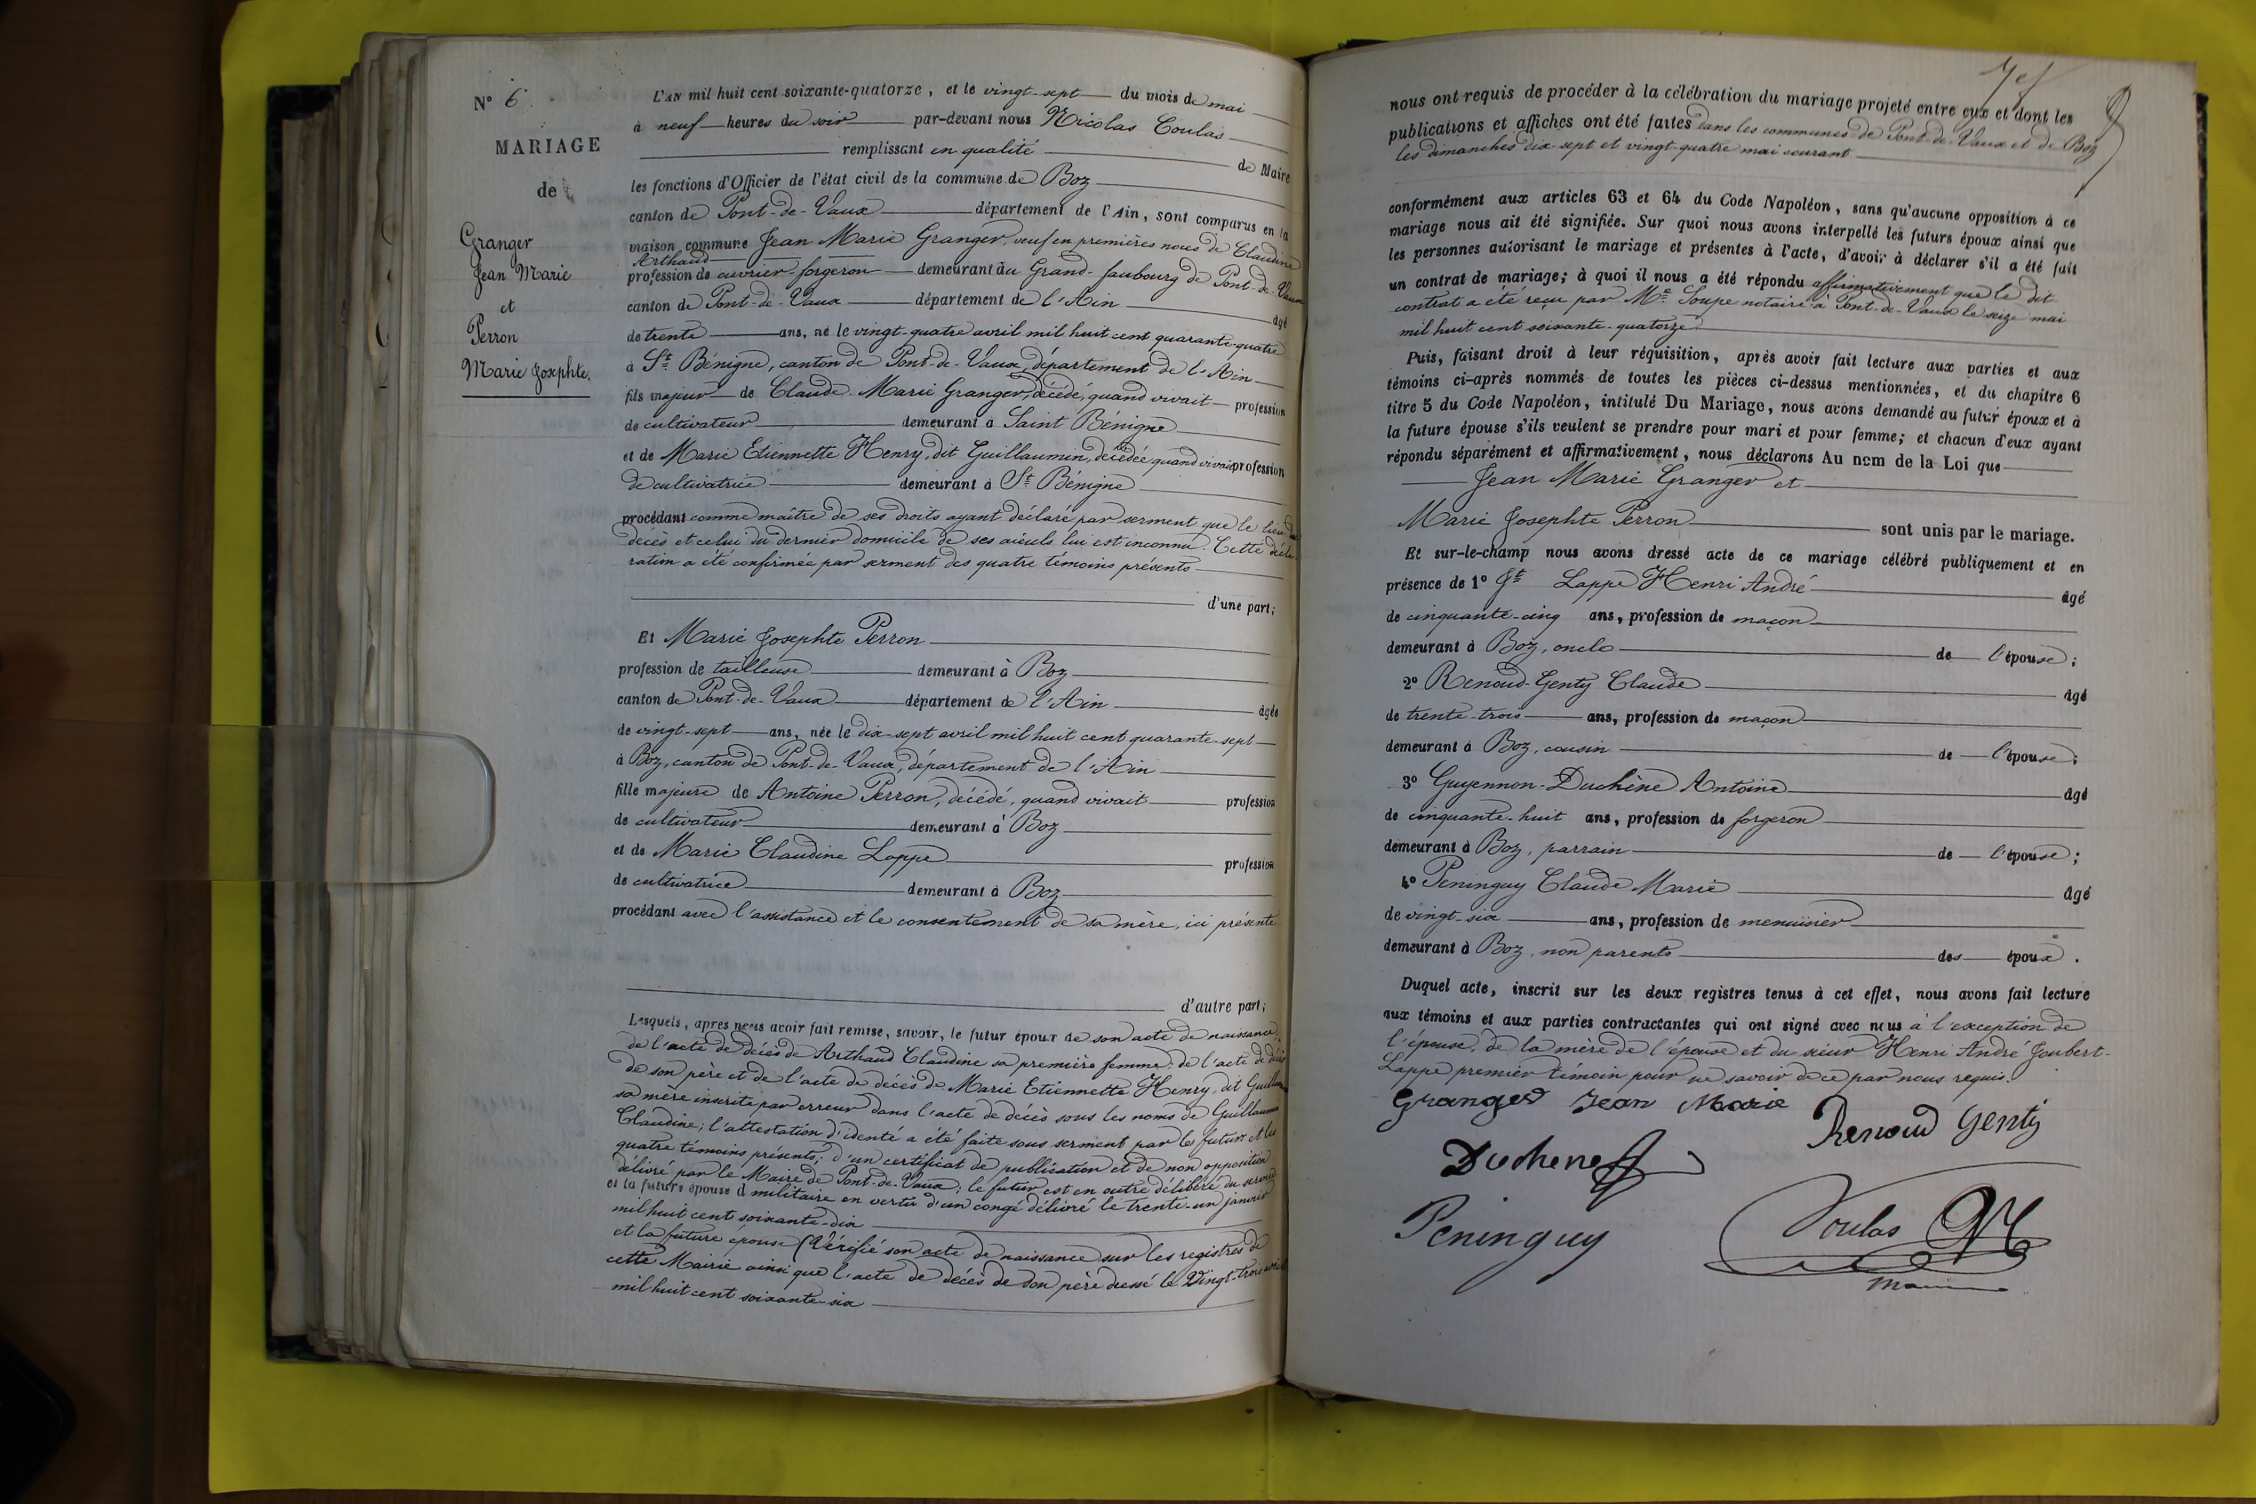 N° 6
MARIAGE
de
Granger
Jean Marie
et
Perron
Marie Josephte.
L'AN mil huit cent soixante-quatorze, et le vingt-sept du mois de mai
à neuf heures du soir par-devant nous Nicolas Coulas
remplissant en qualité de Maire
les fonctions d'Officier de l'état civil de la commune de Boz
canton de Pont-de-Vaux département de l'Ain, sont comparus en la
maison commune Jean Marie Granger, veuf en premières noces de Claudine
Arthaud
profession de ouvrier-forgeron demeurant au Grand-faubourg de Pont-de-Vaux
canton de Pont-de-Vaux département de l'Ain âgé
de trente ans, né le vingt-quatre avril mil huit cent quarante-quatre
à St Bénigne, canton de Pont-de-Vaux, département de l'Ain
fils majeur de Claude-Marie Granger, décédé, quand vivait profession
de cultivateur demeurant à Saint Bénigne
et de Marie Etiennette Henry, dit Guillaumin, décédée quand vivait profession
de cultivatrice demeurant à St Bénigne
procédant comme maître de ses droits ayant déclaré par serment que le lieu du
décès et celui du dernier domicile de ses aïeuls lui est inconnu. Cette décla-
ration a été confirmée par serment des quatre témoins présents
d'une part;
Et Marie Josephte Perron
profession de tailleuse demeurant à Boz
canton de Pont-de-Vaux département de l'Ain âgée
de vingt-sept ans, née le dix-sept avril mil huit cent quarante-sept
à Boz, canton de Pont-de-Vaux, département de l'Ain
fille majeure de Antoine Perron, décédé, quand vivait profession
de cultivateur demeurant à Boz
et de Marie Claudine Loppe profession
de cultivatrice demeurant à Boz
procédant avec l'assistance et le consentement de sa mère, ici présente
d'autre part;
Lesquels, après nous avoir fait remise, savoir, le futur époux de son acte de naissance,
de l'acte de décès de Arthaud Claudine sa première femme; de l'acte de décès
de son père et de l'acte de décès de Marie Etiennette Henry, dit Guillaumin
sa mère inscrite par erreur dans l'acte de décès sous les noms de Guillaumin
Claudine; l'attestation d'identé a été faite sous serment par les futurs et les
quatre témoins présents; d'un certificat de publication et de non opposition
délivré par le Maire de Pont-de-Vaux; le futur est en outre délibéré du service
et la future épouse d militaire en vertu d'un congé délivré le trente-un janvier
mil huit cent soixante-dix
et la future épouse (Vérifié son acte de naissance sur les registres de
cette Mairie ainsi que l'acte de décès de son père dressé le vingt-trois
mil huit cent soixante-six
nous ont requis de procéder à la célébration du mariage projeté entre eux et dont les
publications et affiches ont été faites dans les communes de Pont-de-Vaux et de Boz
les dimanches dix-sept et vingt-quatre mai courant
conformément aux articles 63 et 64 du Code Napoléon, sans qu'aucune opposition à ce
mariage nous ait été signifiée. Sur quoi nous avons interpellé les futurs époux ainsi que
les personnes autorisant le mariage et présentes à l'acte, d'avoir à déclarer s'il a été fait
un contrat de mariage; à quoi il nous a été répondu affirmativement que le dit
contrat a été reçu par Me Soupe notaire à Pont-de-Vaux le seize mai
mil huit cent soixante-quatorze
Puis, faisant droit à leur réquisition, après avoir fait lecture aux parties et aux
témoins ci-après nommés de toutes les pièces ci-dessus mentionnées, et du chapitre 6
titre 5 du Code Napoléon, intitulé Du Mariage, nous avons demandé au futur époux et à
la future épouse s'ils veulent se prendre pour mari et pour femme; et chacun d'eux ayant
répondu séparément et affirmativement, nous déclarons Au nom de la Loi que
Jean Marie Granger et
Marie Josephte Perron sont unis par le mariage.
Et sur-le-champ nous avons dressé acte de ce mariage célébré publiquement et en
présence de 1° Jt Loppe Henri André âgé
de cinquante-cinq ans, profession de maçon
demeurant à Boz, oncle de l'épouse;
2° Renoud-Genty Claude âgé
de trente-trois ans, profession de maçon
demeurant à Boz, cousin de l'épouse;
3° Guyennon-Duchêne Antoine âgé
de cinquante-huit ans, profession de forgeron
demeurant à Boz, parrain de l'épouse;
4° Peninguy Claude Marie âgé
de vingt-six ans, profession de menuisier
demeurant à Boz, non parents des époux.
Duquel acte, inscrit sur les deux registres tenus à cet effet, nous avons fait lecture
aux témoins et aux parties contractantes qui ont signé avec nous à l'exception de
l'épouse, de la mère de l'épouse et du sieur Henri André Joubert-
Loppe premier témoin pour ne savoir de ce par nous requis.
Granger Jean Marie
Renoud Genty
Duchene
Peninguy
Coulas
Maire